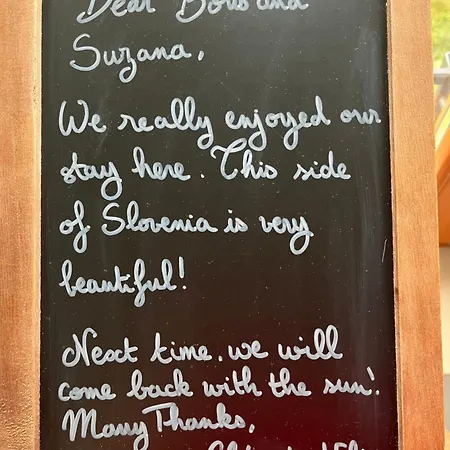 Dear Boris and
Suzana,
We really enjoyed our
stay here. This side
of Slovenia is very
beautiful!
Next time, we will
come back with the sun!
Many Thanks,